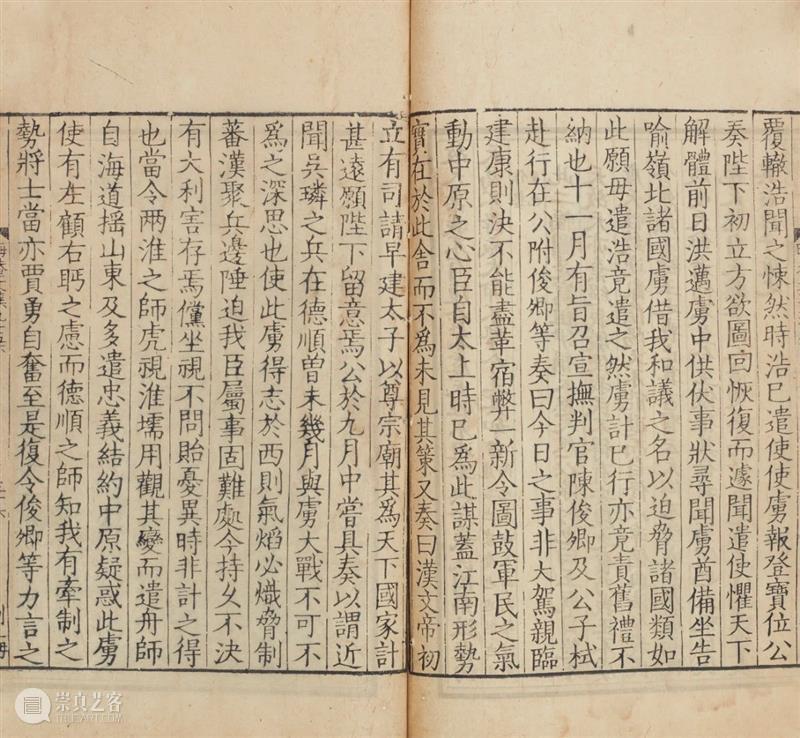 覆轍浩聞之悚然時浩巳遣使使虜報登寶位公
奏陛下初立方欲圖囘恢復而遽聞遣使懼天下
解體前日洪邁虜中供伏事狀尋聞虜酋備坐告
喻嶺北諸國虜借我和議之名以迫脅諸國類如
此願毋遣浩竟遣之然虜計巳行亦竟責舊禮不
納也十一月有旨召宣撫判官陳俊卿及公子栻
赴行在公附俊卿等奏曰今日之事非大駕親臨
建康則決不能盡革宿弊一新令圖鼓軍民之氣
動中原之心臣自太上時巳爲此謀蓋江南形勢
實在於此舎而不爲未見其策又奏曰漢文帝初
立有司請早建太子以尊宗廟其爲天下國家計
甚遠願陛下留意焉公於九月中嘗具奏以謂近
聞吳璘之兵在德順曽未幾月與虜大戰不可不
爲之深思也使此虜得志於西則氣焰必熾脅制
蕃漢聚兵邊陲迫我臣屬事固難處今持久不決
有大利害存焉儻坐視不問貽憂異時非計之得
也當令兩淮之師虎視淮壖用觀其變而遣舟師
自海道摇山東及多遣忠義結約中原疑惑此虜
使有左顧右眄之慮而德順之師知我有牽制之
勢將士當亦賈勇自奮至是復令俊卿等力言之
崇真艺客